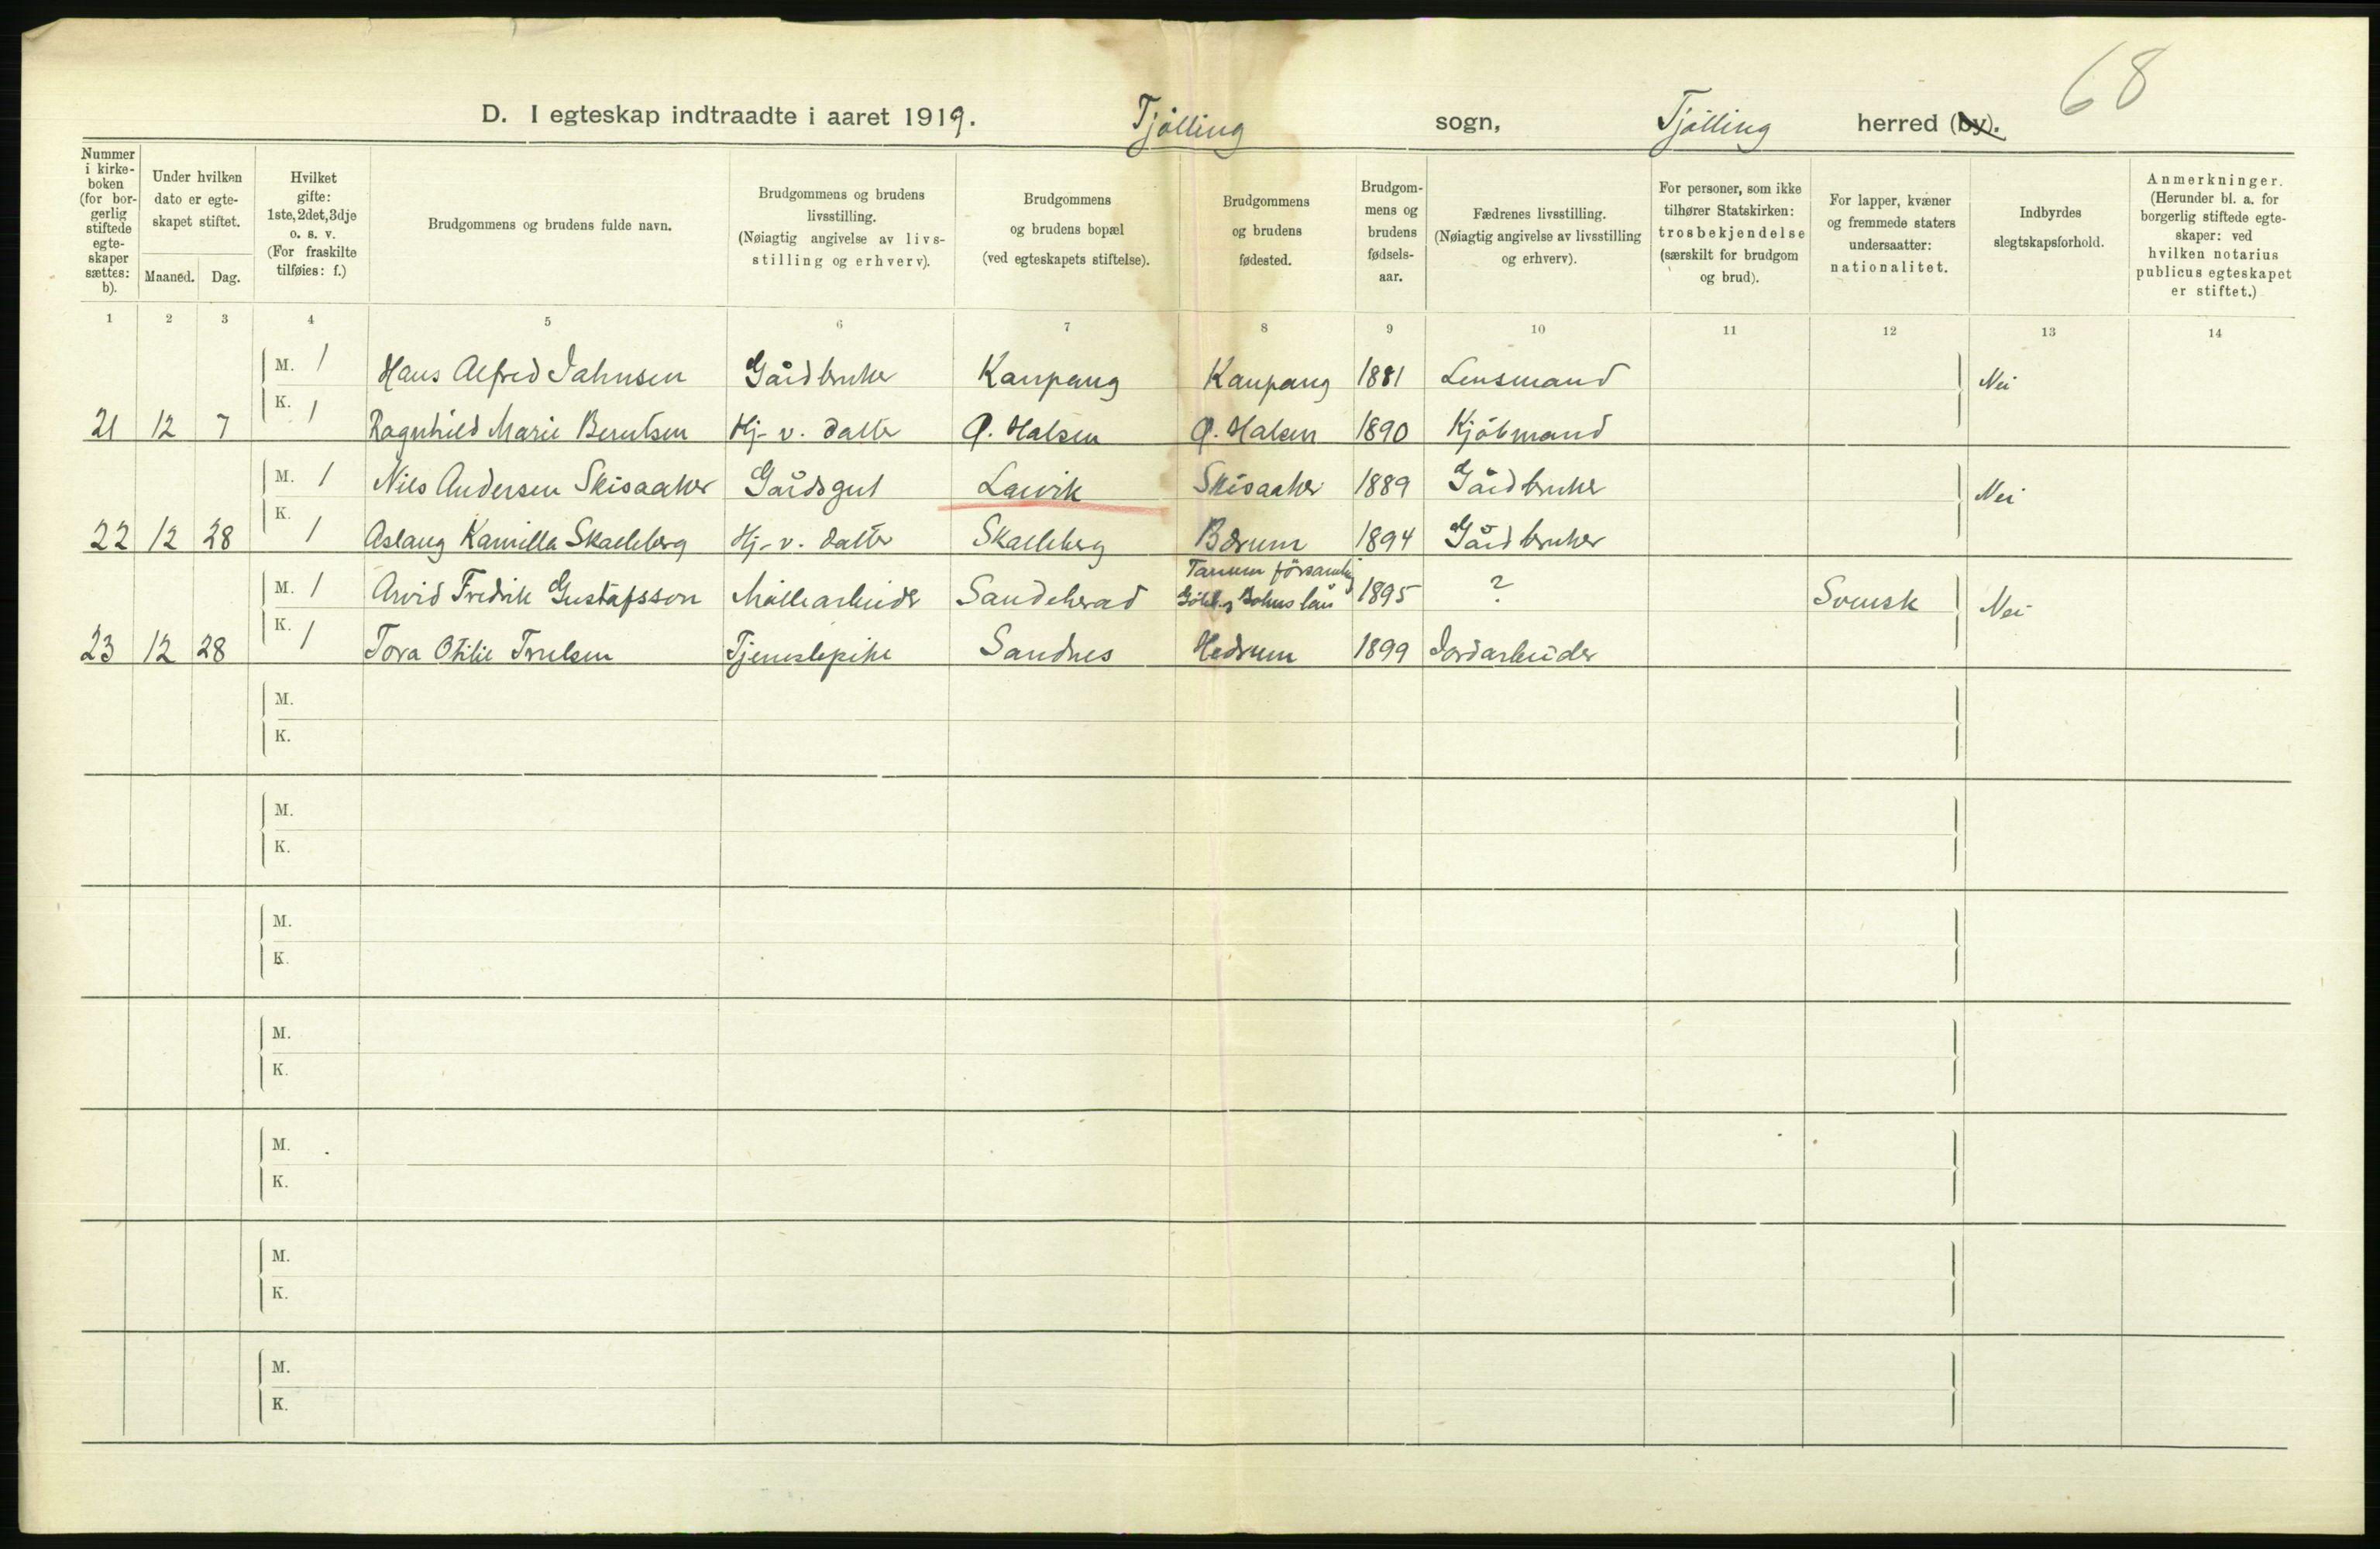 68
D. I egteskap indtraadte i aaret 1919. Tjølling sogn, Tjølling herred (by).
Nummer i kirkeboken (for borgerlig stiftede egteskaper sættes: b).
Under hvilken dato er egteskapet stiftet.
Maaned. Dag.
Hvilket gifte: 1ste, 2det, 3dje o. s. v. (For fraskilte tilføies: f.)
Brudgommens og brudens fulde navn.
Brudgommens og brudens livsstilling. (Nøiagtig angivelse av livsstilling og erhverv).
Brudgommens og brudens bopæl (ved egteskapets stiftelse).
Brudgommens og brudens fødested.
Brudgommens og brudens fødselsaar.
Fædrenes livsstilling. (Nøiagtig angivelse av livsstilling og erhverv).
For personer, som ikke tilhører Statskirken: trosbekjendelse (særskilt for brudgom og brud).
For lapper, kvæner og fremmede staters undersaatter: nationalitet.
Indbyrdes slegtskapsforhold.
Anmerkninger. (Herunder bl. a. for borgerlig stiftede egteskaper: ved hvilken notarius publicus egteskapet er stiftet.)
1 2 3 4 5 6 7 8 9 10 11 12 13 14
M. 1 Hans Alfred Jahnsen Gårdbruker Kaupang Kaupang 1881 Lensmand Nei
21 12 7 K. 1 Ragnhild Marie Berntsen Hj-v. datter Ø. Halsen Ø. Halsen 1890 Kjøbmand
M. 1 Nils Andersen Skisaaker Gårdsgut Larvik Skisaaker 1889 Gårdbruker Nei
22 12 28 K. 1 Aslaug Kamilla Skalleberg Hj-v. datter Skalleberg Bærum 1894 Gårdbruker
M. 1 Arvid Fredrik Gustafsson Møllearbeider Sandeherad Tanum församling Bohuslän 1895 ? Svensk Nei
23 12 28 K. 1 Tora Otilie Trulsen Tjenestepike Sandnes Hedrum 1899 Jordarbeider
M.
K.
M.
K.
M.
K.
M.
K.
M.
K.
M.
K.
M.
K.